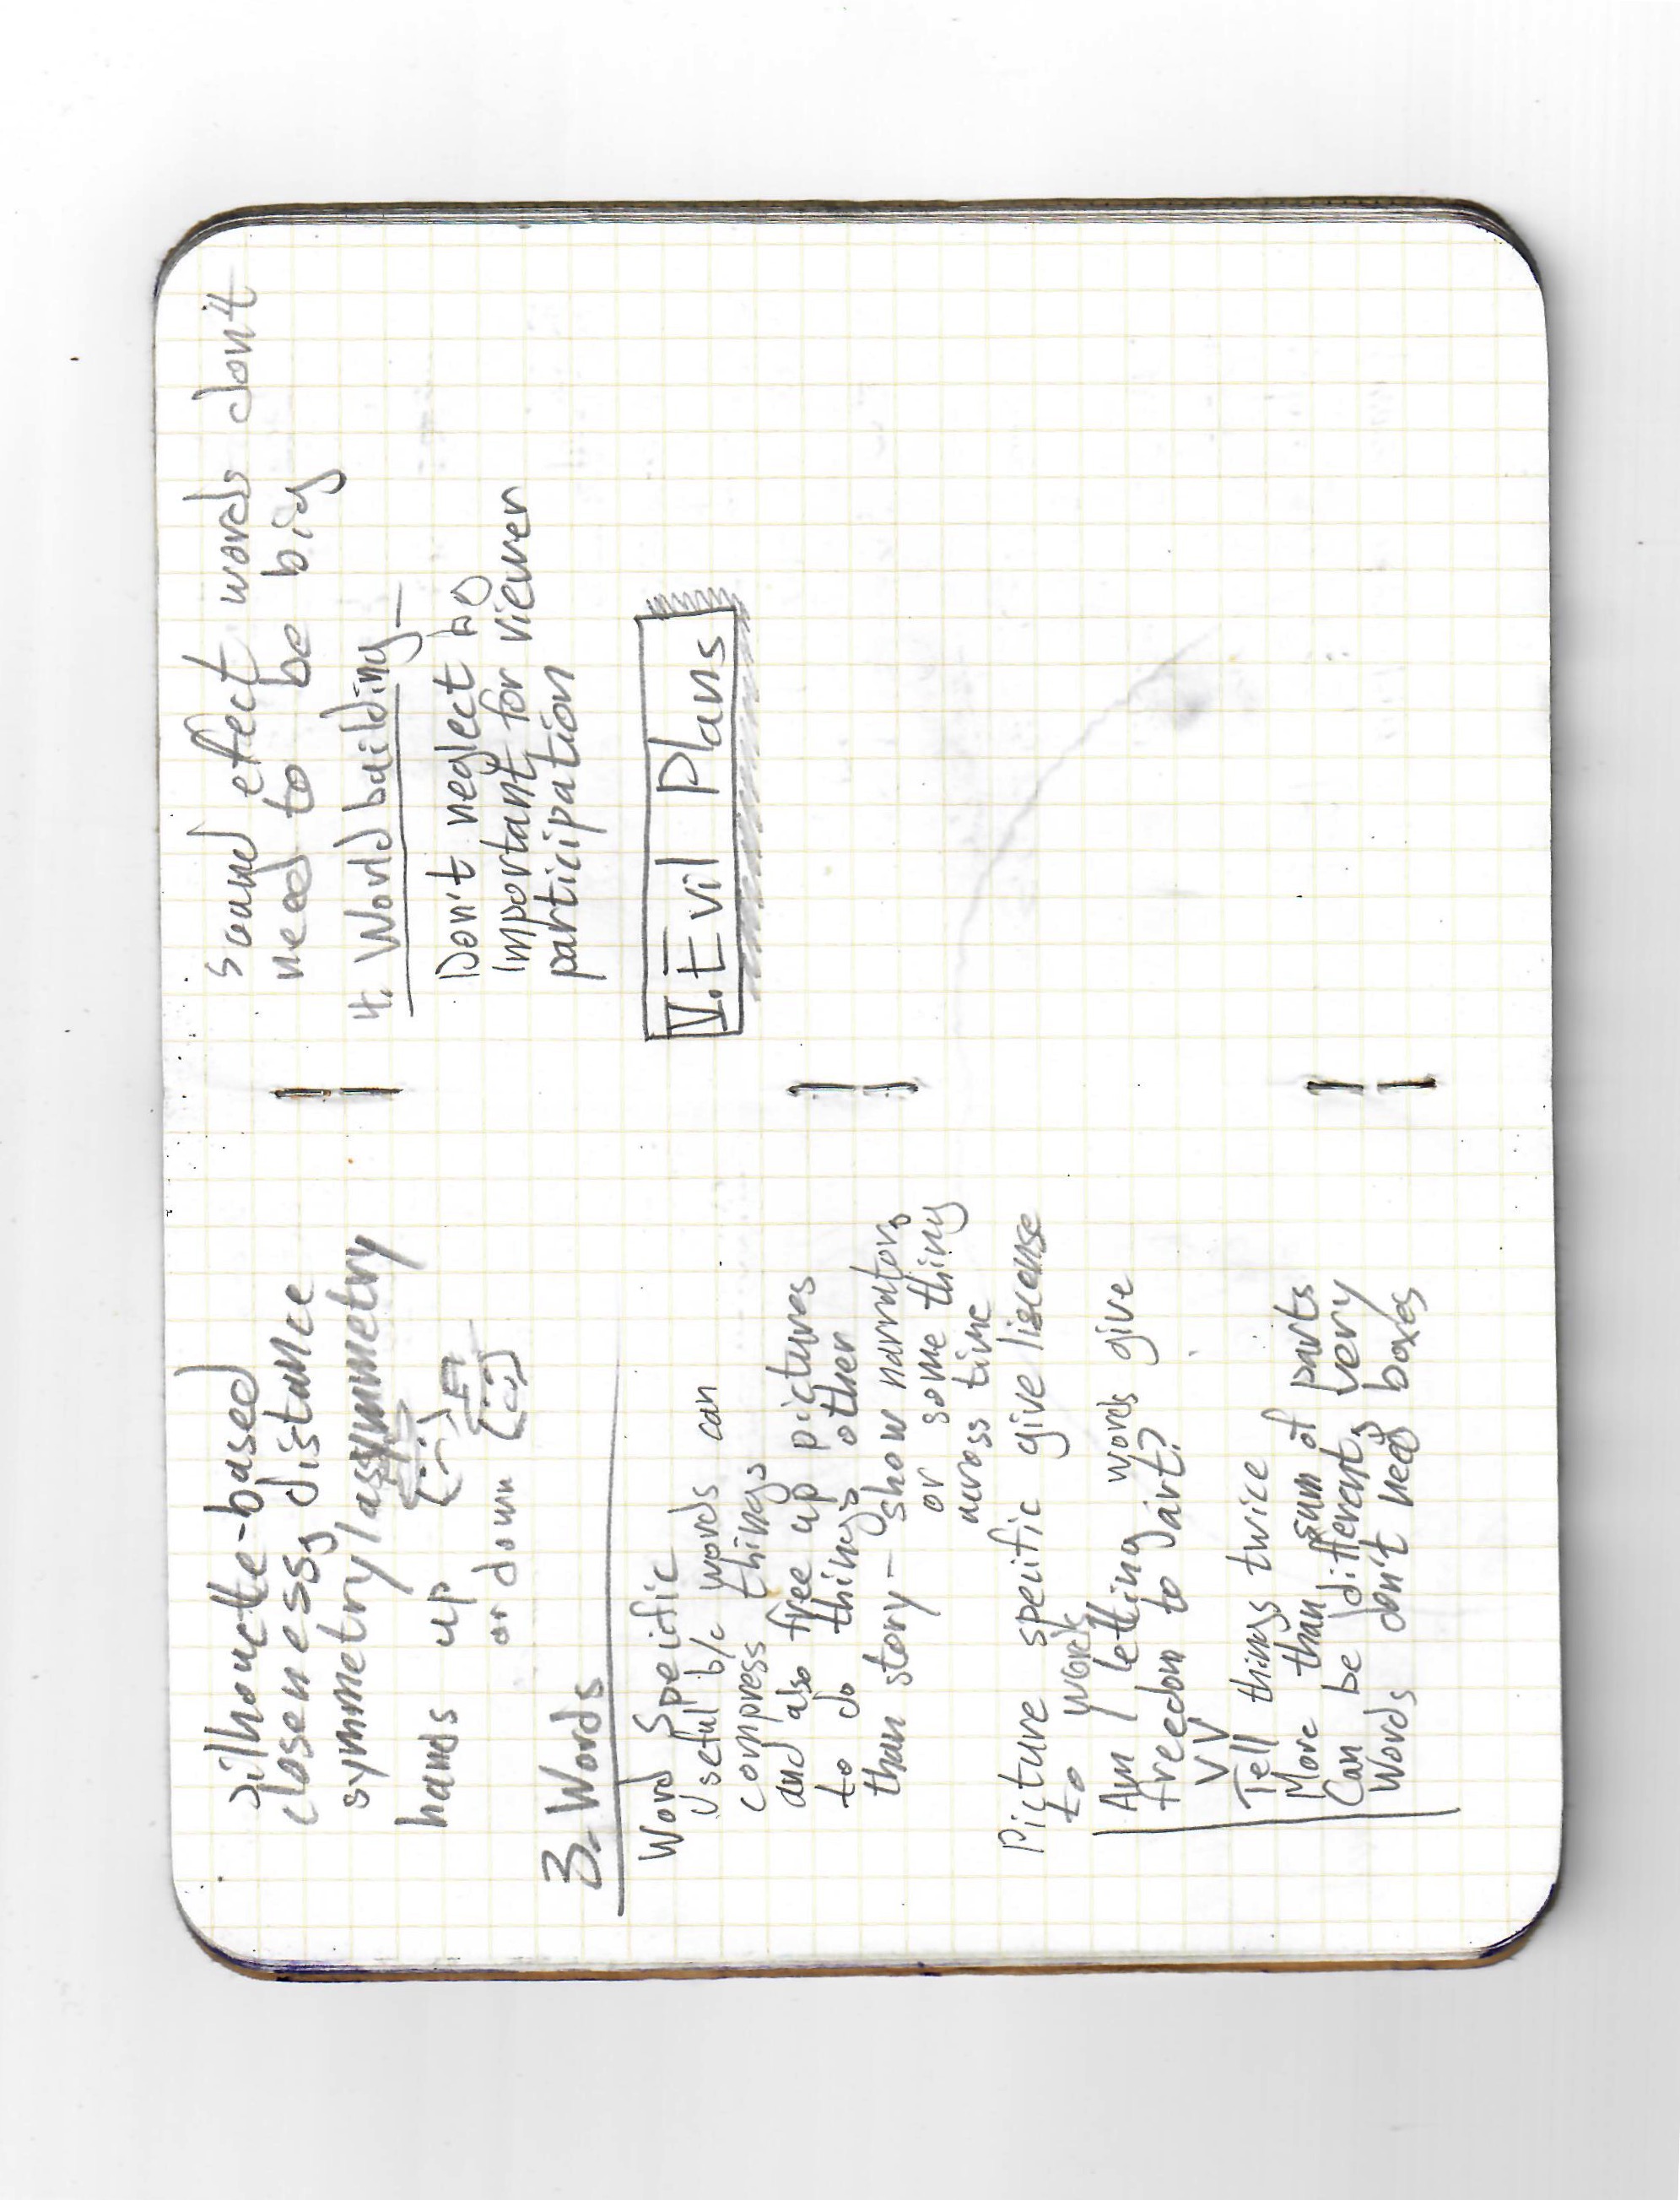 silhouette-based
closeness, distance
symmetry/assymmetry
hands up
or down
3. Words
Word Specific
Useful b/c words can
compress things
and also free up pictures
to do things other
than story - show narrator,
or some thing
across time
Picture specific give liscense
to words
Am I letting words give
freedom to art?
VV
Tell things twice
More than sum of parts
Can be different, very
Words don't need boxes
Sound efect words don't
need to be big
4. World building
Don't neglect bg
Important for viewer
participation
V. Evil Plans